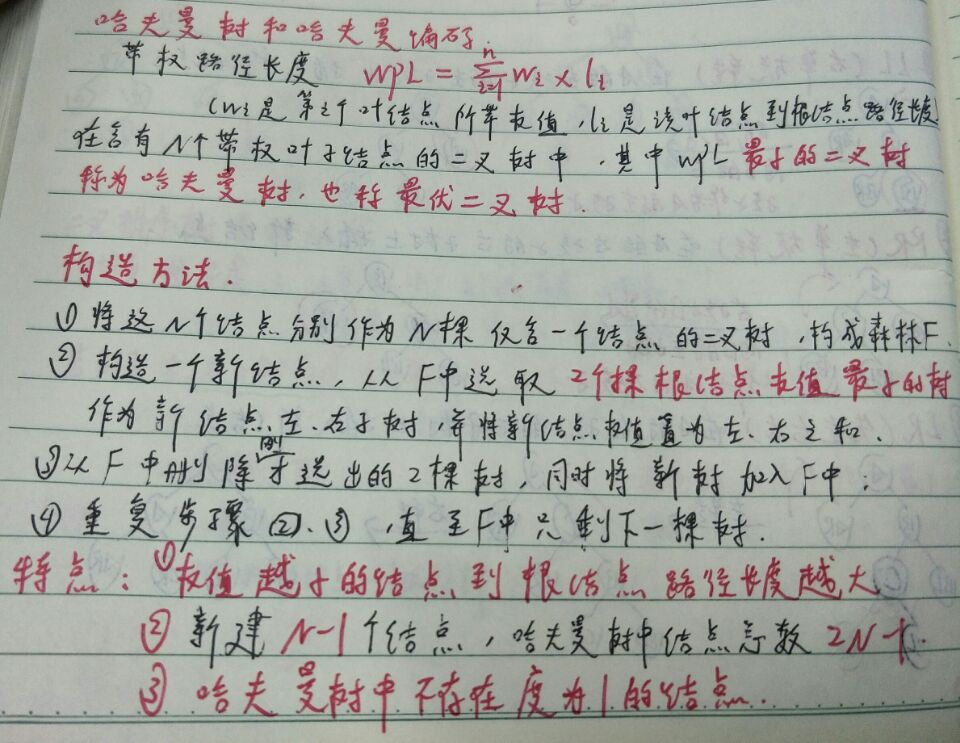 哈夫曼树和哈夫曼编码
带权路径长度 WPL = ∑ᵢ₌₁ⁿ wᵢ × lᵢ
(wᵢ是第i个叶结点所带权值,lᵢ是该叶结点到根结点路径长度)
在含有N个带权叶子结点的二叉树中,其中WPL最小的二叉树
称为哈夫曼树,也称最优二叉树.
构造方法.
① 将这N个结点分别作为N棵仅含一个结点的二叉树,构成森林F.
② 构造一个新结点,从F中选取2个棵根结点权值最小的树
作为新结点左、右子树,并将新结点权值置为左、右之和.
③从F中删除刚才选出的2棵树,同时将新树加入F中;
④ 重复步骤②、③,直至F中只剩下一棵树.
特点:①权值越小的结点到根结点路径长度越大
② 新建N-1个结点,哈夫曼树中结点总数2N-1.
③ 哈夫曼树中不存在度为1的结点.